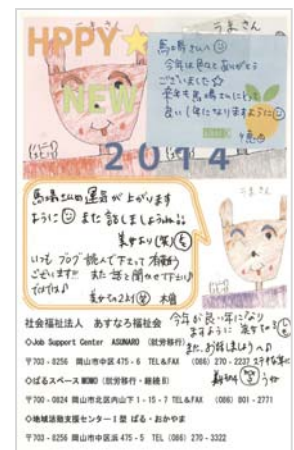 うまさん
うまさん
HPPY
馬場さんへ
今年は色々とありがとう
ございました☆
来年も馬場さんにとって
良い1年になりますように
NEW
2014
馬場さんの運気が上がります
ように また話しましょうね
うまさん
いつもブログ読んで下さって有難う
ございます!! また話を聞かせて下さい
ではでは
今年が良い年になり
ますように
社会福祉法人 あすなろ福祉会
◇Job Support Center ASUNARO (就労移行)
〒703-8256 岡山市中区 475-6 TEL&FAX (086) 270-2237
◇ぱるスペース MOMO (就労移行・継続B)
〒700-0824 岡山市北区内山下 1-15-7 TEL&FAX (086) 801-2771
◇地域活動支援センターⅠ型 ぱる・おかやま
〒703-8256 岡山市中区浜 475-5 TEL (086) 270-3322